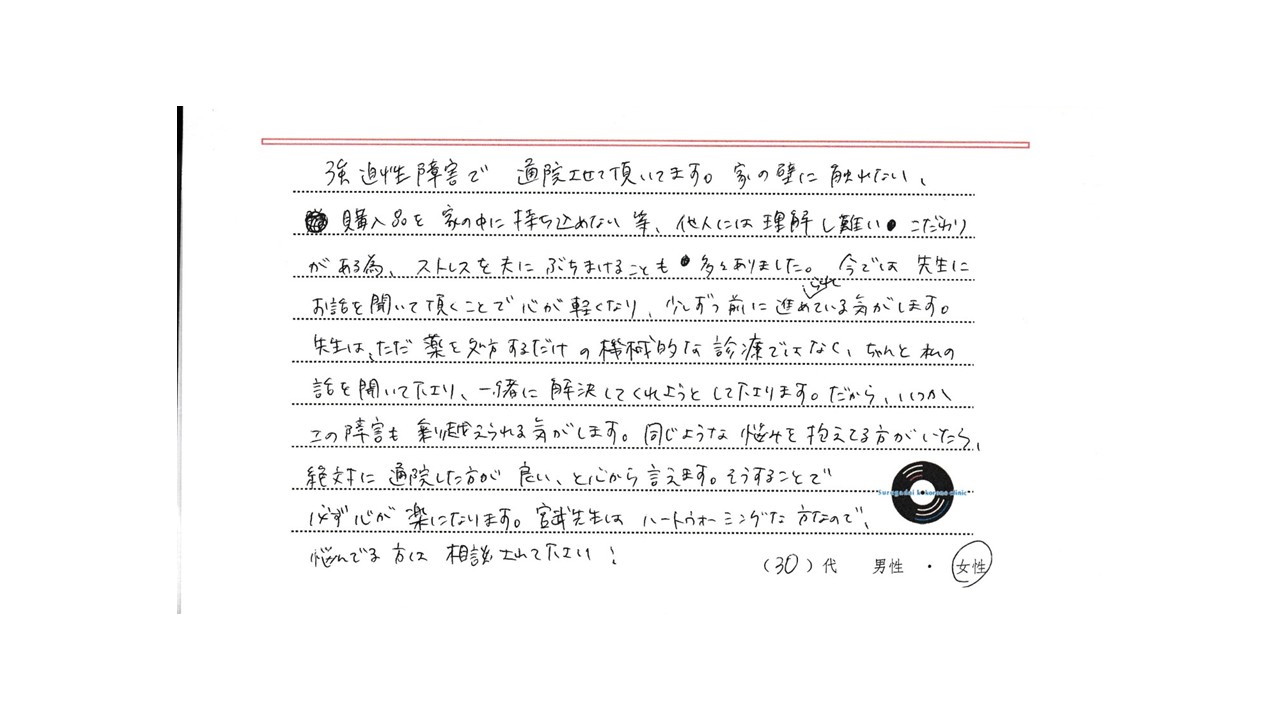 強迫性障害で 通院させて頂いてます。家の壁に触れない、
購入品を家の中に持ち込めない等、他人には理解し難いこだわり
がある為、ストレスを夫にぶちまけることも多々ありました。今では先生に
お話を聞いて頂くことで心が軽くなり、少しずつ前に進められている気がします。
先生は、ただ薬を処方するだけの機械的な診療ではなく、ちゃんと私の
話を聞いて下さり、一緒に解決してくれようとして下さります。だから、いつか
この障害も乗り越えられる気がします。同じような悩みを抱えてる方がいたら、
絶対に通院した方が良い、と心から言えます。そうすることで
Surugadai kokorono clinic
必ず心が楽になります。宮武先生はハートウォーミングな方なので、
悩んでる方は相談されて下さい！
（30）代 男性 ・ 女性